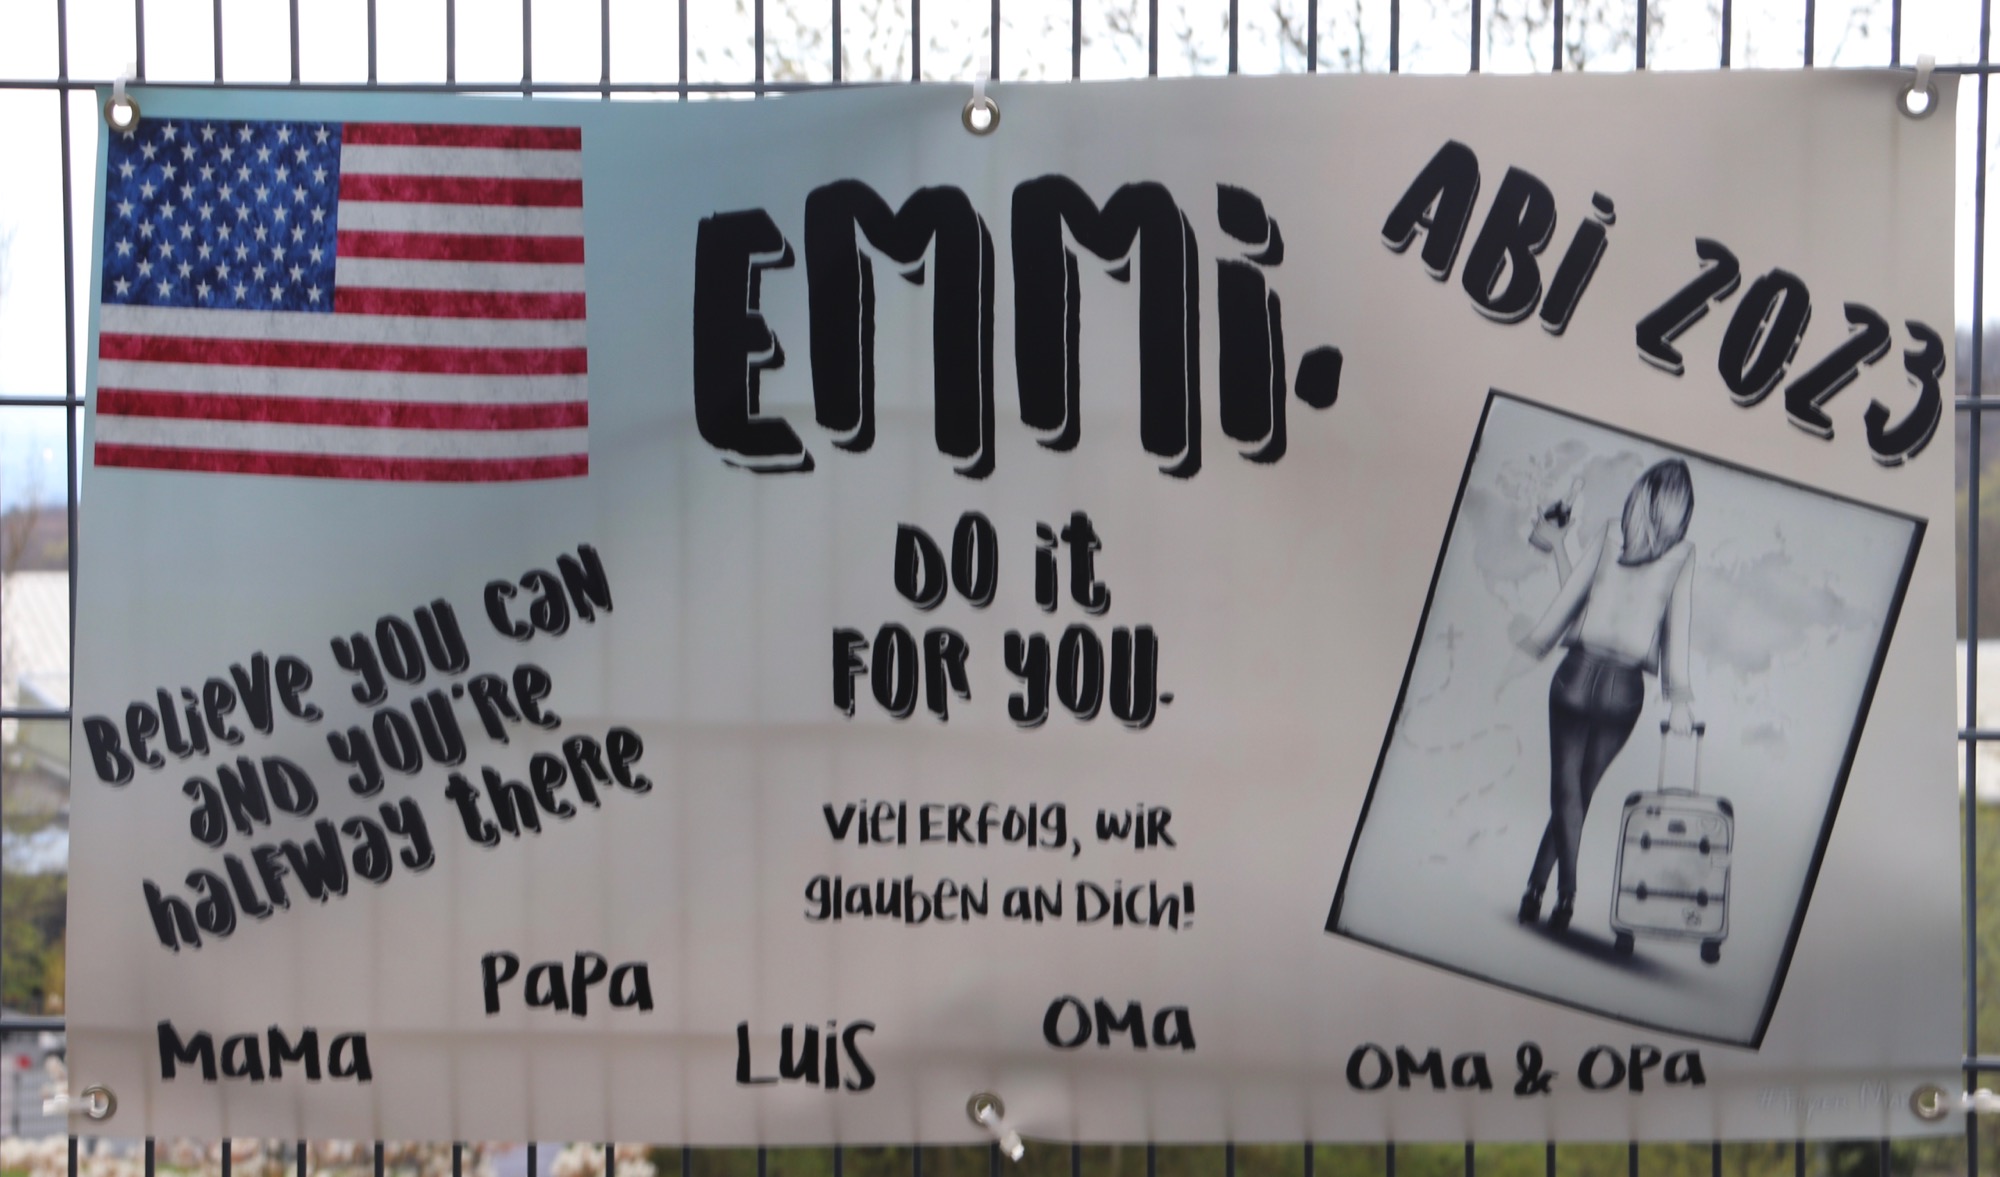 EMMi.
ABi 2023
DO it
FOR YOU.
BELiEVE YOU CAN
AND YOU'RE
HALFWAY THERE
Viel ERFolg, WiR
glauben an Dich!
PaPa
MaMa
Luis
OMa
OMa & OPa